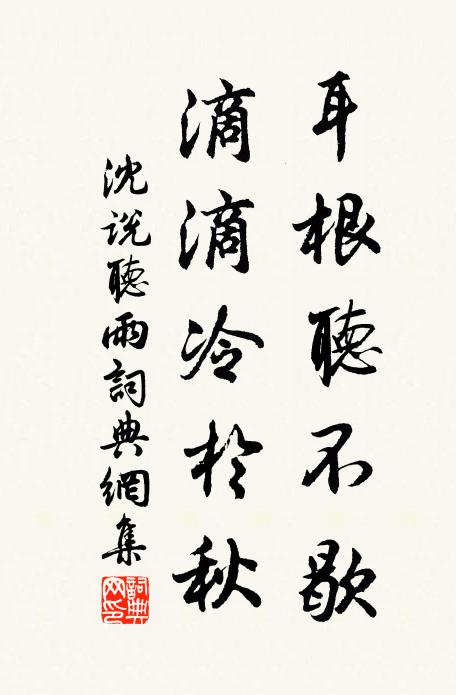 耳根聽不歇
滴滴冷於秋
沈説聽雨詞典網集
詞典网印